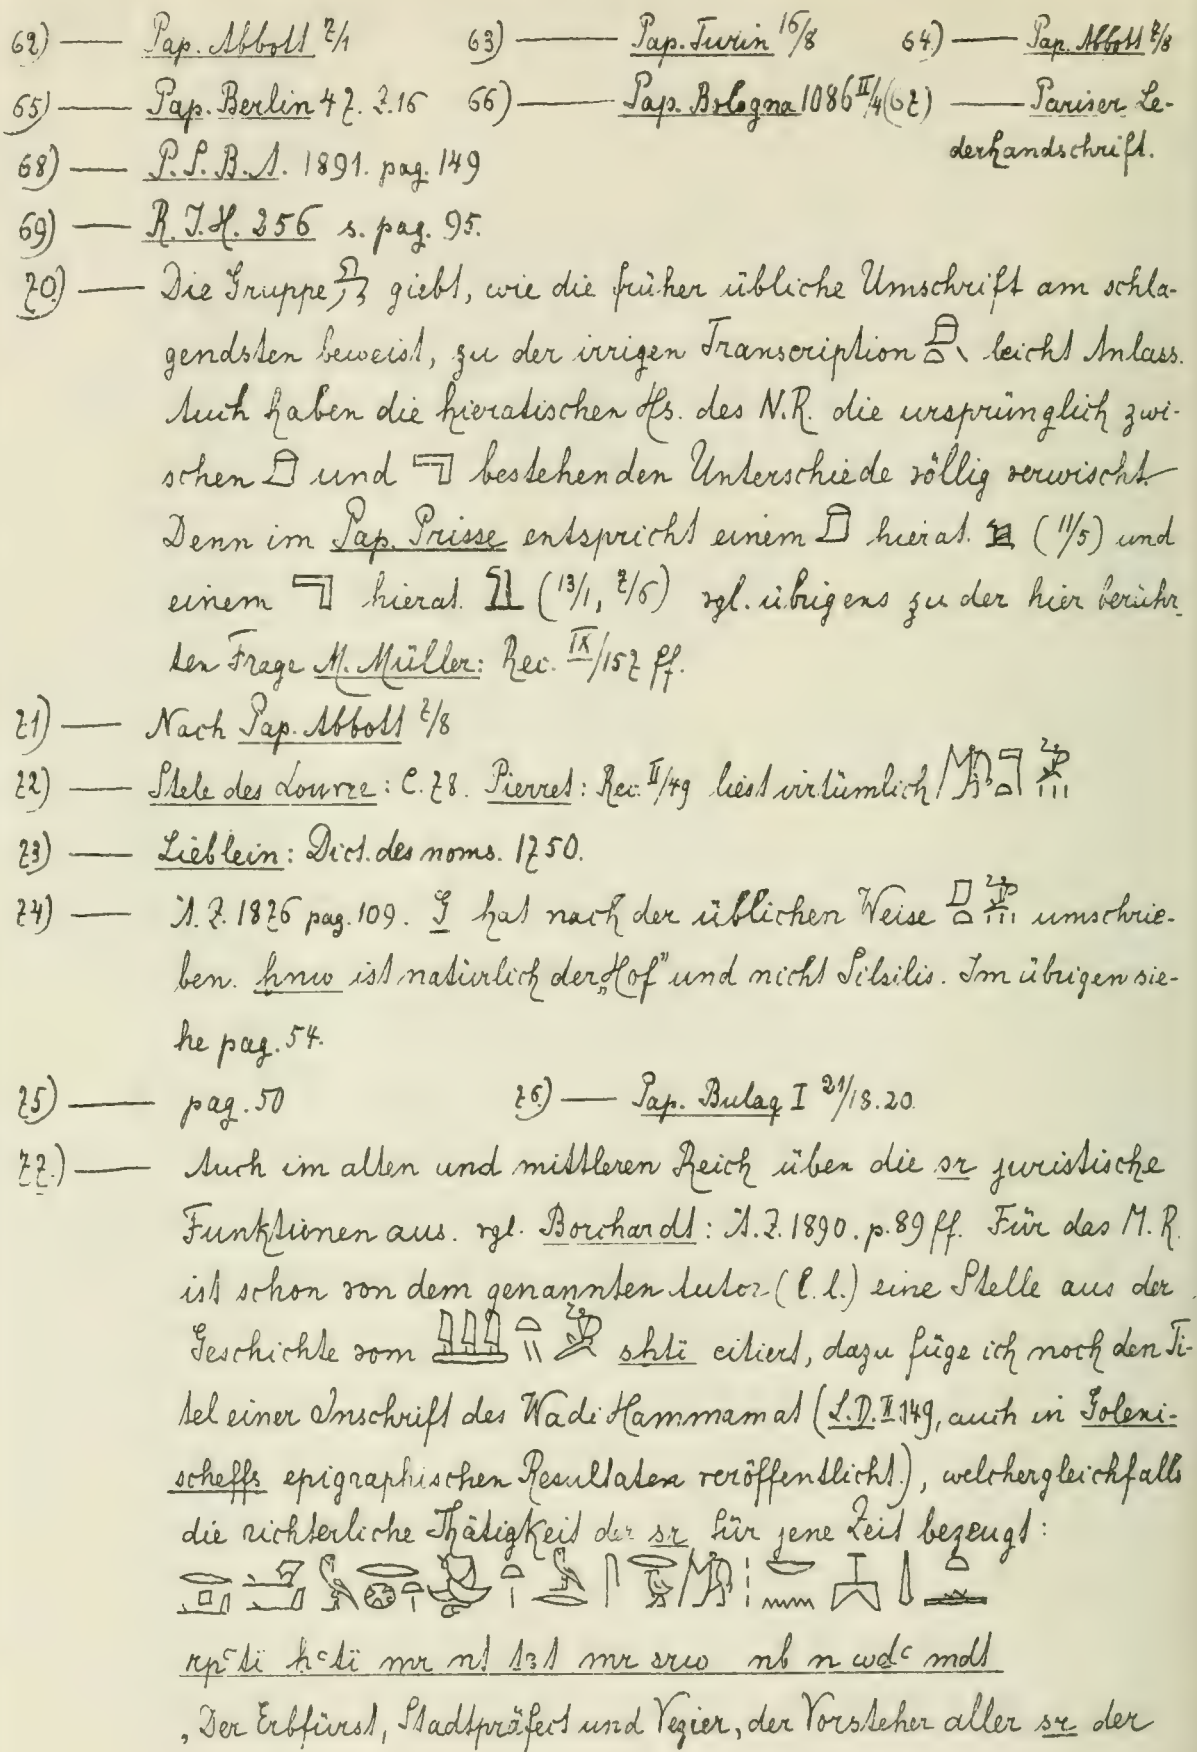 62) — Pap. Abbott 7/1 63) — Pap. Turin 16/8 64) — Pap. Abbott 7/8
65) — Pap. Berlin 47. Z.16 66) — Pap. Bologna 1086 II/4 (67) — Pariser Le-
derhandschrift.
68) — P.S.B.A. 1891. pag. 149
69) — R.I.H. 256 s. pag. 95.
70) — Die Gruppe giebt, wie die früher übliche Umschrift am schla-
gendsten beweist, zu der irrigen Transcription leicht Anlass.
Auch haben die hieratischen Hs. des N.R. die ursprünglich zwi-
schen und bestehenden Unterschiede völlig verwischt.
Denn im Pap. Prisse entspricht einem hierat. (11/5) und
einem hierat. (13/1, 7/6) vgl. übrigens zu der hier berühr-
ten Frage M. Müller: Rec. IX/157 ff.
71) — Nach Pap. Abbott 7/8
72) — Stele des Louvre: C. 78. Pierret: Rec. II/49 liest irrtümlich
73) — Lieblein: Dict. des noms. 1750.
74) — Ä.Z. 1876 pag. 109. G hat nach der üblichen Weise umschrie-
ben. hnw ist natürlich der „Hof" und nicht Silsilis. Im übrigen sie-
he pag. 54.
75) — pag. 50 76) — Pap. Bulaq I 21/18.20.
77.) — Auch im alten und mittleren Reich üben die sr juristische
Funktionen aus. vgl. Borchardt: Ä.Z. 1890. p. 89 ff. Für das M.R.
ist schon von dem genannten Autor (l. l.) eine Stelle aus der
Geschichte vom shti citiert, dazu füge ich noch den Ti-
tel einer Inschrift des Wadi Hammamat (L.D. II 149, auch in Goleni-
scheffs epigraphischen Resultaten veröffentlicht.), welcher gleichfalls
die richterliche Thätigkeit der sr für jene Zeit bezeugt:
rpꜥti hꜥti mr nt t3t mr srw nb n wdꜥ mdt
„Der Erbfürst, Stadtpräfect und Vezier, der Vorsteher aller sr der